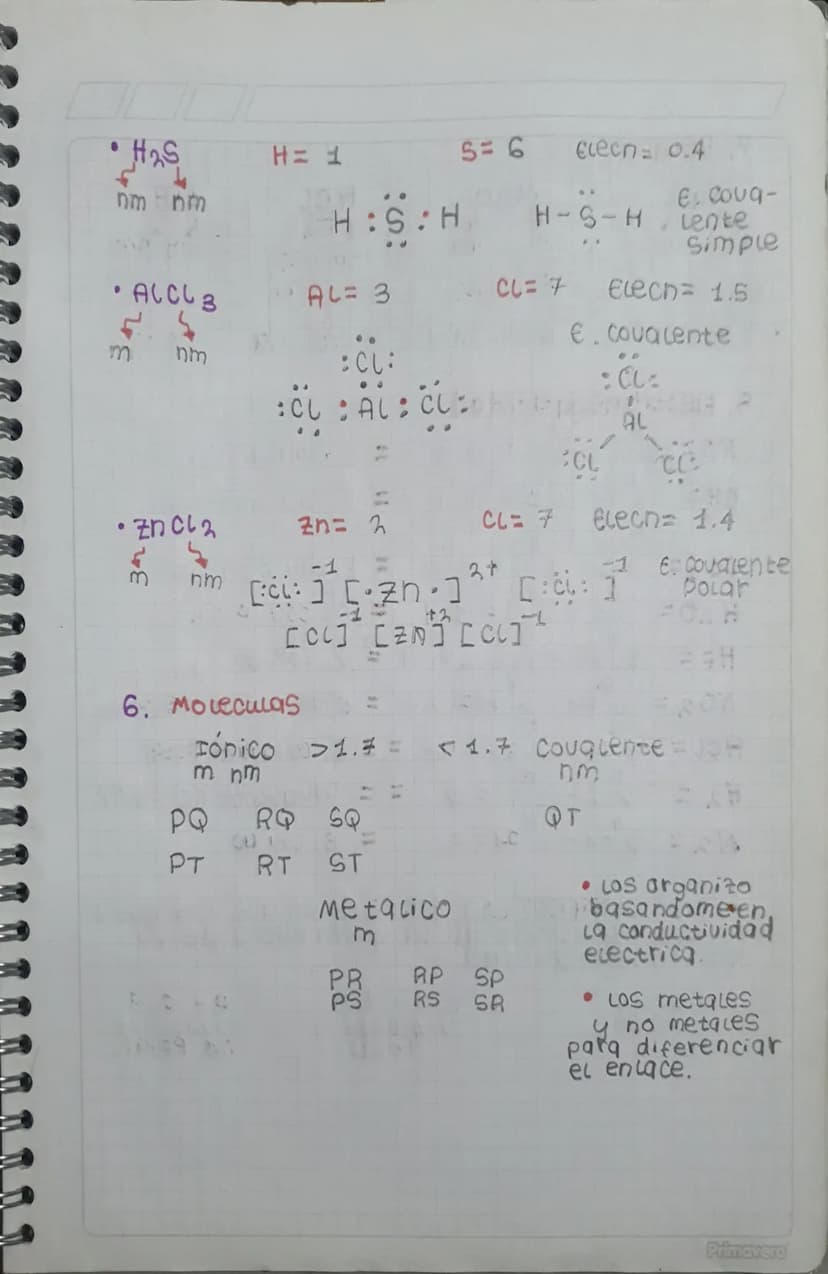 • H2S H= 1 S= 6 Elecn= 0.4
nm nm
H : S : H H - S - H E. cova-
lente
simple
• AlCl3 Al= 3 Cl= 7 Elecn= 1.5
m nm
E. covalente
:Cl: :Cl:
:Cl : Al : Cl: Al
:Cl Cl:
• ZnCl2 Zn= 2 Cl= 7 Elecn= 1.4
m nm
[:Cl:]-1 [·Zn·]2+ [:Cl:]-1 E. covalente
polar
[Cl]-1 [Zn]+2 [Cl]-1
6. Moleculas
Iónico >1.7 < 1.7 covalente
m nm nm
PQ RQ SQ QT
PT RT ST
Metalico
m
PR RP SP
PS RS SR
• Los organizo
basandome en
la conductividad
electrica.
• Los metales
y no metales
para diferenciar
el enlace.
Primavera